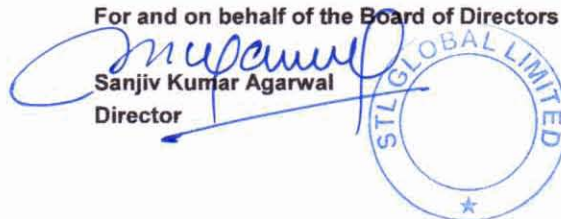 For and on behalf of the Board of Directors
Sanjiv Kumar Agarwal
Director
STL GLOBAL LIMITED